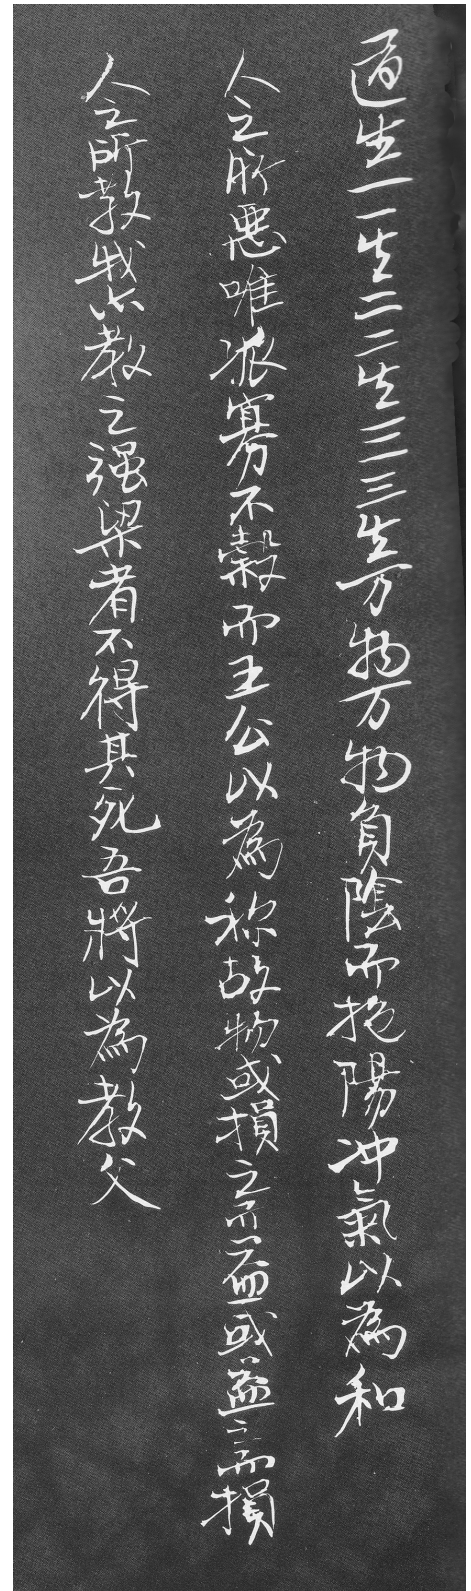 道生一一生二二生三三生万物万物負陰而抱陽冲氣以為和
人之所惡唯孤寡不穀而王公以為称故物或損之而益或益之而損
人之所教我亦教之强梁者不得其死吾將以為教父